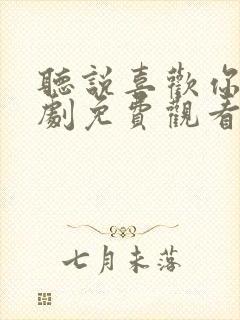 聽説喜歡你
劇免費觀看
七月未落